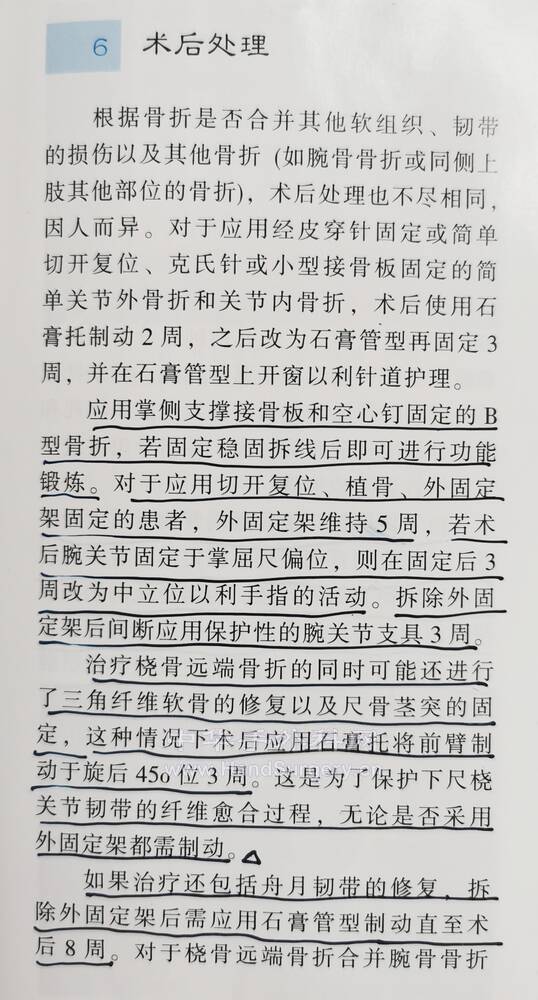 6 术后处理
根据骨折是否合并其他软组织、韧带
的损伤以及其他骨折 (如腕骨骨折或同侧上
肢其他部位的骨折)，术后处理也不尽相同，
因人而异。对于应用经皮穿针固定或简单
切开复位、克氏针或小型接骨板固定的简
单关节外骨折和关节内骨折，术后使用石
膏托制动 2 周，之后改为石膏管型再固定 3
周，并在石膏管型上开窗以利针道护理。
应用掌侧支撑接骨板和空心钉固定的 B
型骨折，若固定稳固拆线后即可进行功能
锻炼。对于应用切开复位、植骨、外固定
架固定的患者，外固定架维持 5 周，若术
后腕关节固定于掌屈尺偏位，则在固定后 3
周改为中立位以利手指的活动。拆除外固
定架后间断应用保护性的腕关节支具 3 周。
治疗桡骨远端骨折的同时可能还进行
了三角纤维软骨的修复以及尺骨茎突的固
定，这种情况下术后应用石膏托将前臂制
动于旋后 45o 位 3 周。这是为了保护下尺桡
关节韧带的纤维愈合过程，无论是否采用
外固定架都需制动。
如果治疗还包括舟月韧带的修复，拆
除外固定架后需应用石膏管型制动直至术
后 8 周。对于桡骨远端骨折合并腕骨骨折